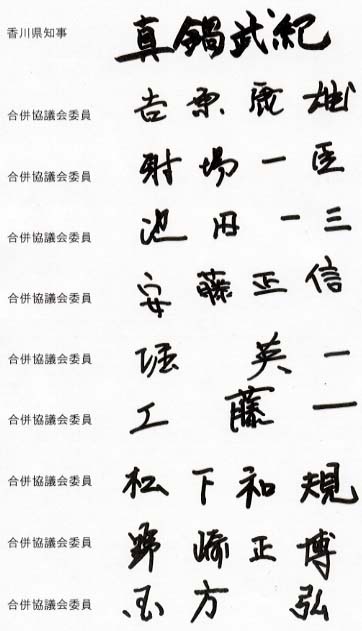 香川県知事 真鍋武紀
合併協議会委員 吉原康雄
合併協議会委員 射場一臣
合併協議会委員 池田一三
合併協議会委員 安藤正信
合併協議会委員 堀英一
合併協議会委員 工藤一
合併協議会委員 松下和規
合併協議会委員 野崎正博
合併協議会委員 方弘